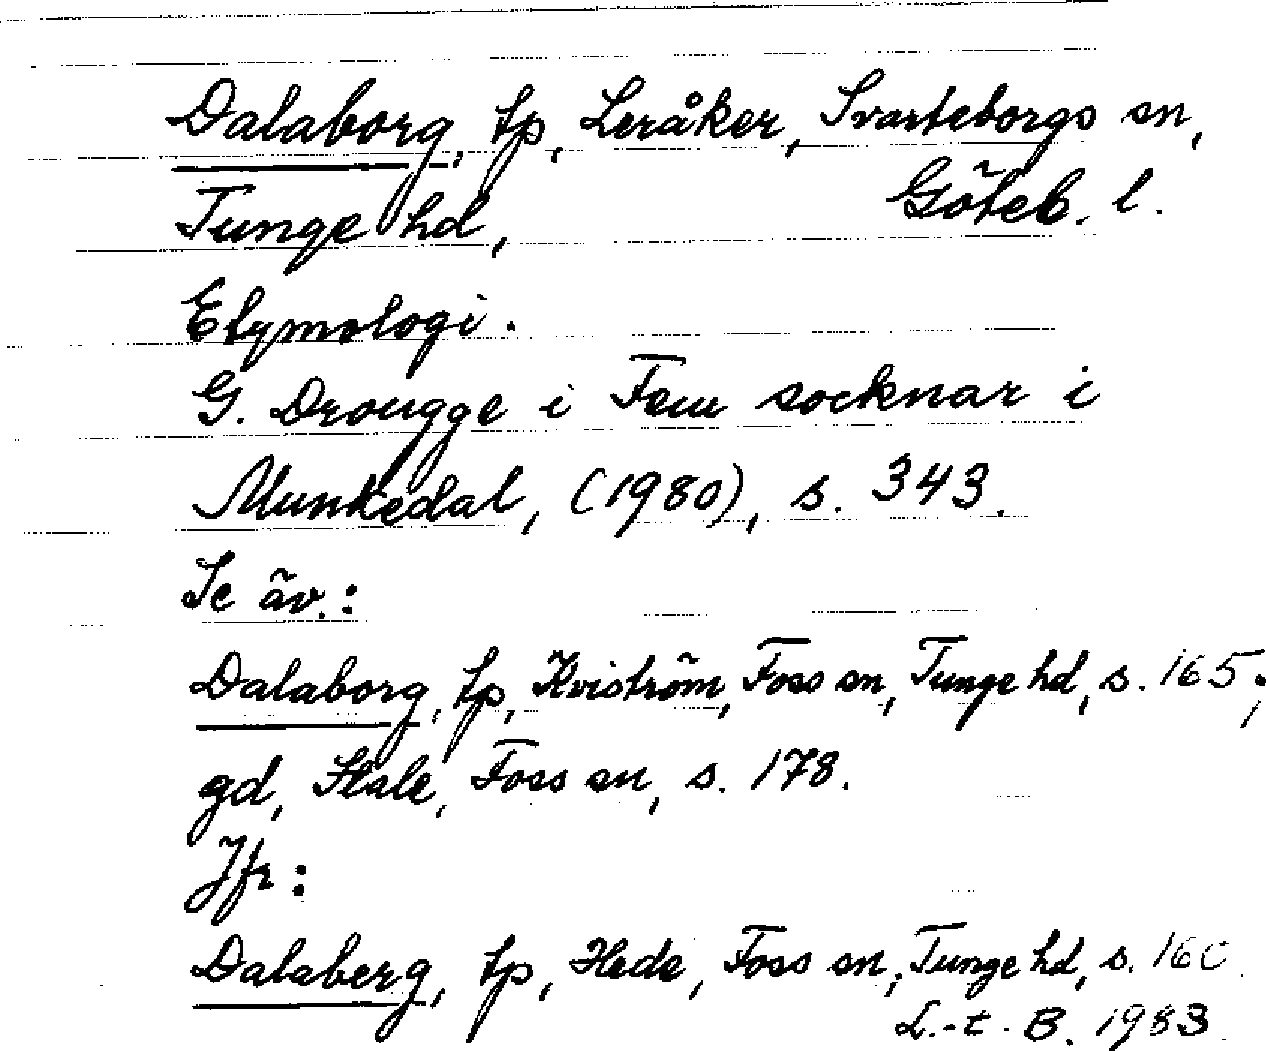 Dalaborg, tp, Leråker, Svarteborgs sn,
Tunge hd, Göteb. l.
Etymologi.
G. Drougge i Fem socknar i
Munkedal, (1980), s. 343.
Se äv.:
Dalaborg, tp, Kviström, Foss sn, Tunge hd, s. 165;
gd, Stale, Foss sn, s. 178.
Jfr:
Dalaberg, tp, Hede, Foss sn, Tunge hd, s. 160.
L.-t. B. 1983